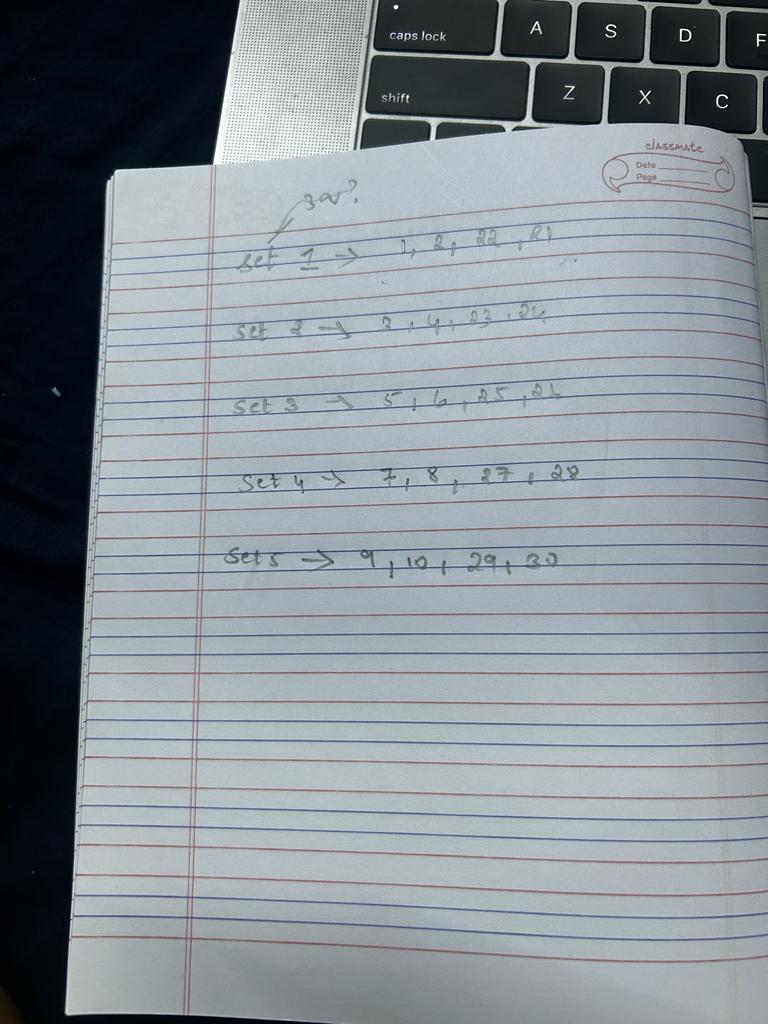 caps lock A S D F
shift Z X C
classmate
Date
Page
set 1 → 1, 2, 22, 21
set 2 → 3, 4, 23, 24
set 3 → 5, 6, 25, 26
set 4 → 7, 8, 27, 28
set 5 → 9, 10, 29, 30